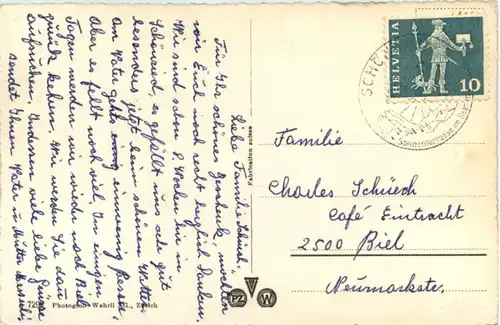 Liebe Familie Schüech!
Für Ihr schönes Geschenk, möchten
wir Euch noch recht herzlich danken.
Wir sind schon 8 Wochen hier in
Schönried, es gefällt uns sehr gut
besonders jetzt beim schönen Wetter.
Am Vater geht es einwenig besser,
Aber es fehlt noch viel. In einigen
Tagen werden wir wieder nach Biel
zurück kehren. Wir werden Sie dann
aufsuchen. Inderssen viele liebe Grüsse
sendet Ihnen Vater u. Mutter
Fabrication suisse
7298 Photoglob-Wehrli AG., Zürich
PZ W
HELVETIA
10
SCHÖN
Sonnenterrasse
Familie
Charles Schüech
Café Eintracht
2500 Biel
Neumarkstr.